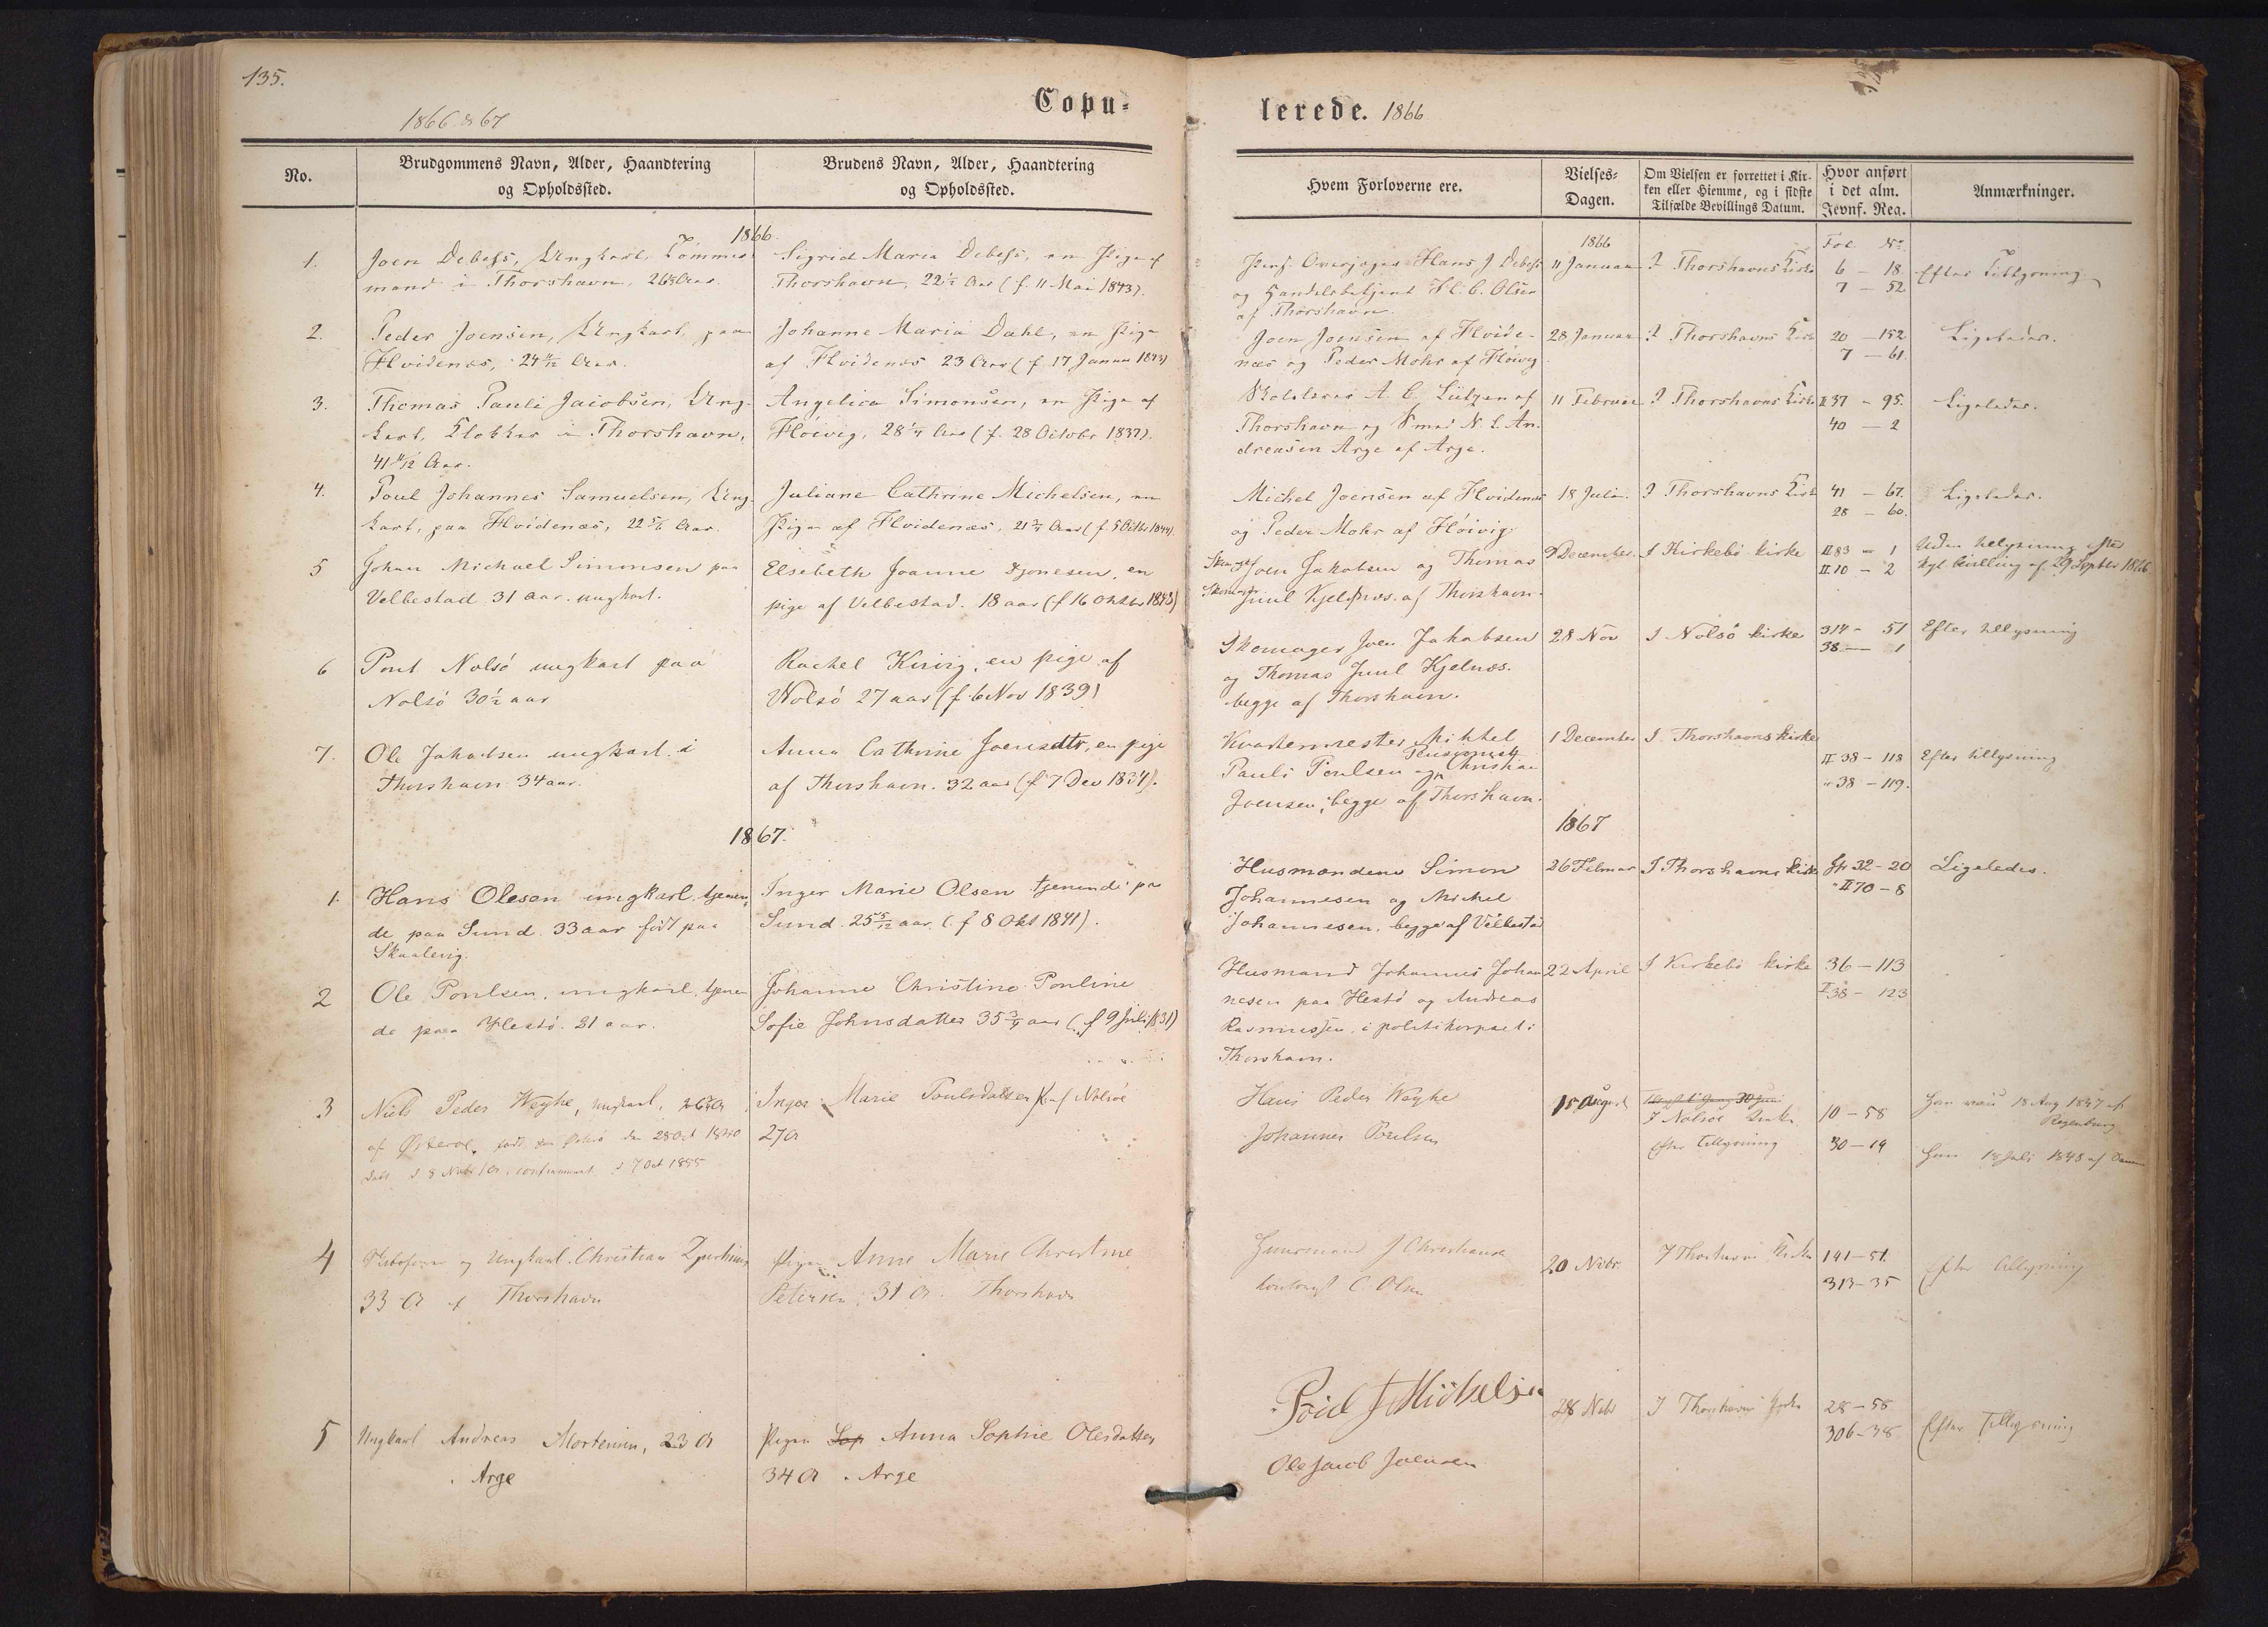 135.
1866 & 67
Copu-
lerede. 1866
No.
Brudgommens Navn, Alder, Haandtering
og Opholdssted.
Brudens Navn, Alder, Haandtering
og Opholdssted.
Hvem Forloverne ere.
Vielses-
Dagen.
Om Vielsen er forrettet i Kir-
ken eller Hiemme, og i sidste
Tilfælde Bevillings Datum.
Hvor anført
i det alm.
Jevnf. Reg.
Anmærkninger.
1866.
1866
Fol. No.
1.
Joen Debess, Ungkarl, Tømmer-
mand i Thorshavn, 26 Aar.
Sigrid Maria Debess, en Pige af
Thorshavn, 22½ Aar (f. 11 Mai 1843).
Hans J Debess
og Handelsbetjent H. C. Olsen
af Thorshavn.
11 Januar
I Thorshavns Kirke
6 - 18
7 - 52
Efter Tillysning
2.
Peder Joensen, Ungkarl, paa
Hvidenæs, 24 Aar.
Johanne Maria Dahl, en Pige
af Hvidenæs 23 Aar (f. 17 Januar 1843)
Joen Joensen af Hvide-
næs og Peder Mohr af Høivig
28 Januar
I Thorshavns Kirke
20 - 152
7 - 61.
Ligeledes.
3.
Thomas Pauli Jacobsen, Ung-
karl, Klokker i Thorshavn,
41 11/12 Aar.
Angelica Simonsen, en Pige af
Høivig, 28¼ Aar (f. 28 Octobr 1837).
A. C. Lützen af
Thorshavn og N. L. An-
dreasen Arge af Arge.
11 Februar
I Thorshavns Kirke
II 37 - 95.
40 - 2
Ligeledes.
4.
Poul Johannes Samuelsen, Ung-
karl, paa Hvidenæs, 22 5/6 Aar.
Juliane Cathrine Michelsen, en
Pige af Hvidenæs, 21¾ Aar (f 5 Octbr 1844).
Michel Joensen af Hvidenæs
og Peder Mohr af Høivig.
18 Julii.
I Thorshavns Kirke
41 - 67.
28 - 60.
Ligeledes.
5
Johan Michael Simonsen paa
Velbestad 31 aar. ungkarl.
Elsebeth Joanne Djonesen, en
pige af Velbestad. 18 aar (f 16 oktbr 1848)
Joen Jakobsen og Thomas
Juul Kjelnæs. af Thorshavn.
9 December.
I Kirkebö kirke
II 83 - 1
II 10 - 2
Uden tillysning efter
kgl bevilling af 29 Septbr 1866.
6
Poul Nolsö ungkarl paa
Nolsö 30½ aar
Rachel Kirvig, en pige af
Nolsö 27 aar (f. 6 Nov 1839)
Skomager Joen Jakobsen
og Thomas Juul Kjelnæs.
begge af Thorshavn.
28 Nov
I Nolsö kirke
314 - 51
38 - 1
Efter tillysning
7.
Ole Jakobsen ungkarl i
Thorshavn 34 aar.
Anna Cathrine Joensdtr, en pige
af Thorshavn. 32 aar (f 7 Dec 1834).
Kvartermester Mikkel
Pauli Poulsen og Pensionist Christian
Joensen, begge af Thorshavn.
1 December
I Thorshavns kirke
II 38 - 118
" 38 - 119.
Efter tillysning
1867.
1867
1.
Hans Olesen ungkarl, tjenen-
de paa Sund. 33 aar född paa
Skaalevig.
Inger Marie Olsen tjenende paa
Sund. 25 5/12 aar. (f 8 Okt 1841).
Husmændene Simon
Johannesen og Michel
Johannesen, begge af Velbestad
26 Februar
I Thorshavns kirke
32 - 20
II 70 - 8
Ligeledes.
2
Ole Poulsen, ungkarl, tjenen-
de paa Hestö. 31 aar.
Johanne Christine Pouline
Sofie Johnsdatter 35¾ aar (f 9 Juli 1831)
Husmand Johannes Johan-
nesen paa Hestö og Andreas
Rasmussen, i politikorpset i
Thorshavn.
22 April
I Kirkebö kirke
36 - 113
38 - 123
3
Niels Peder Weyhe, ungkarl, 26
af Østerø, den 28 Oct 1840
8 Novbr, confirmeret 7 Oct 1855
Inger Marie Poulsdatter af Nolsøe
27 A
Hans Peder Weyhe
Johannes Poulsen
15 August
I Nolsøe Kirke
efter tillysning
10 - 58
30 - 19
Han vacc 18 Aug 1847 af
Regenburg
Hun 18 Juli 1848 af
4
og Ungkarl Christian
33 A af Thorshavn
Pigen Anne Marie Christine
Petersen, 31 A. Thorshavn
J Christiansen
C. Olsen
20 Nvbr.
I Thorshavns Kirke
141 - 51.
313 - 35
Efter tillysning
5
Ungkarl Andreas Mortensen, 23 A
. Arge
Pigen Sop Anna Sophie Olesdatter
34 A . Arge
Poul J Michelsen
Ole Jacob Joensen
28 Nvbr
I Thorshavns Kirke
28 - 58
306 - 38
Efter Tillysning